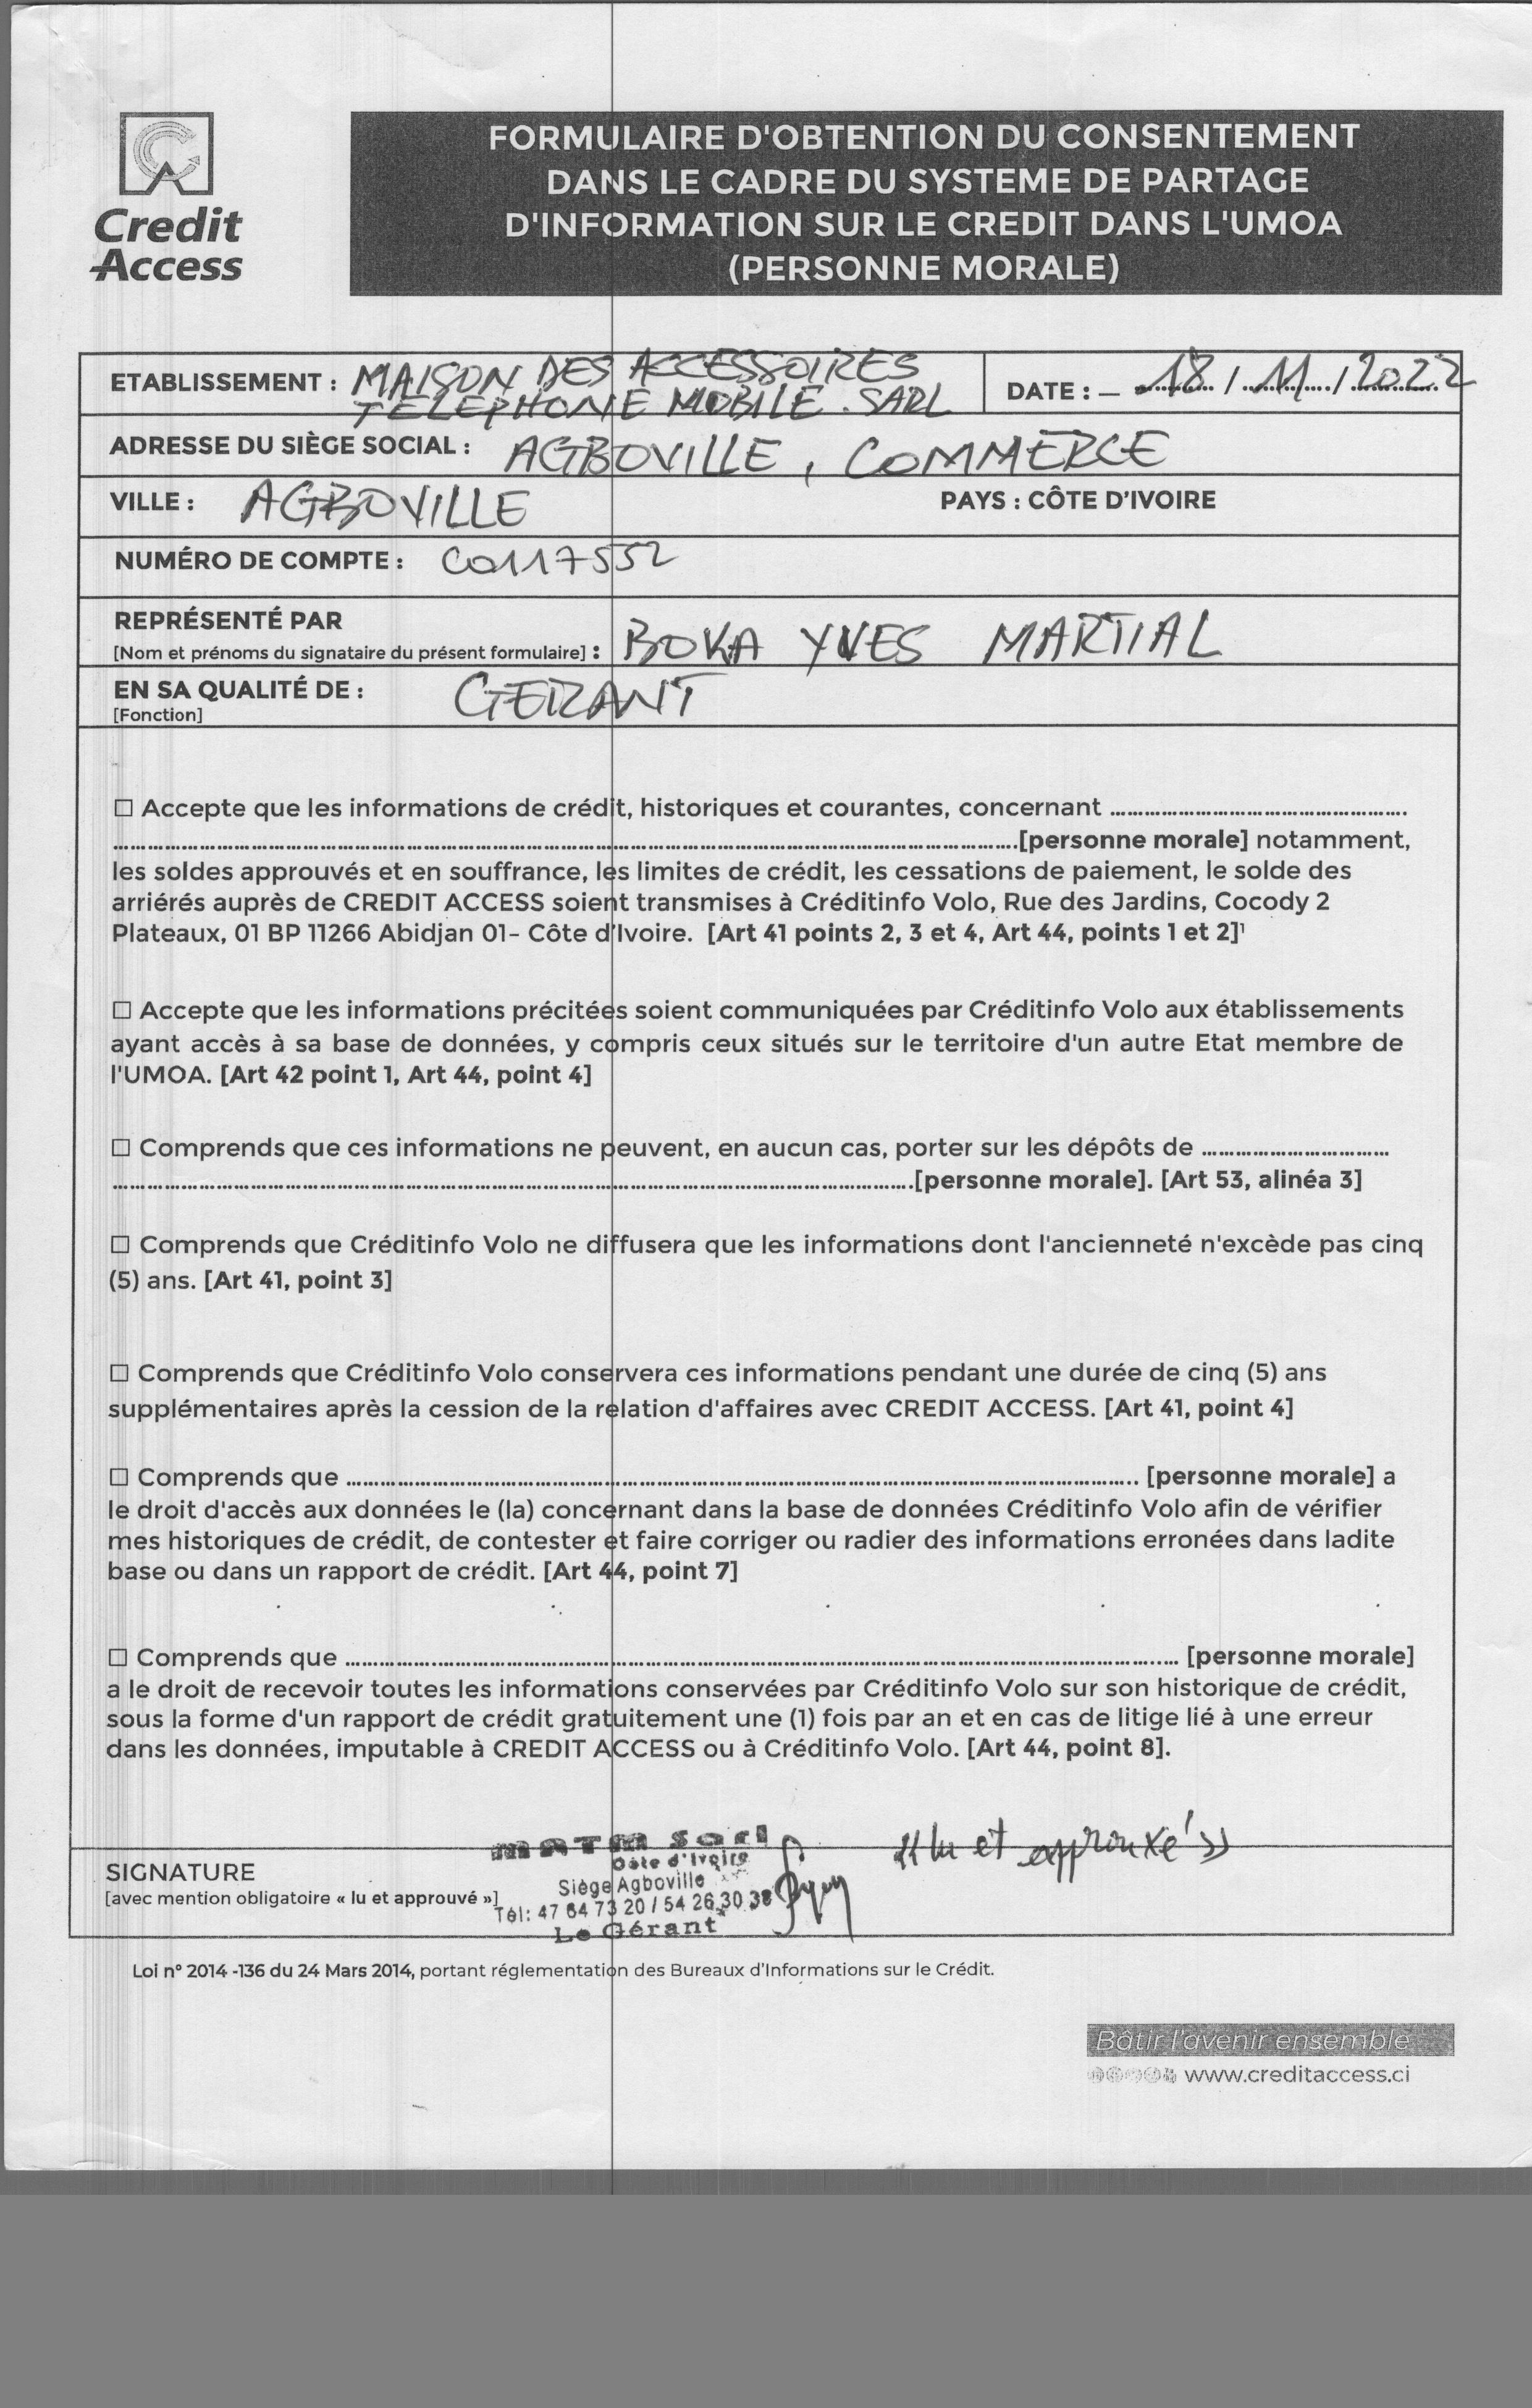 Credit
Access
FORMULAIRE D'OBTENTION DU CONSENTEMENT
DANS LE CADRE DU SYSTEME DE PARTAGE
D'INFORMATION SUR LE CREDIT DANS L'UMOA
(PERSONNE MORALE)
ETABLISSEMENT : MAISON DES ACCESSOIRES
TELEPHONE MOBILE. SARL
DATE : – 18 / 11 / 2022
ADRESSE DU SIÈGE SOCIAL : AGBOVILLE, COMMERCE
VILLE : AGBOVILLE PAYS : CÔTE D'IVOIRE
NUMÉRO DE COMPTE : C0117552
REPRÉSENTÉ PAR
[Nom et prénoms du signataire du présent formulaire] : BOKA YVES MARTIAL
EN SA QUALITÉ DE : GERANT
[Fonction]
☐ Accepte que les informations de crédit, historiques et courantes, concernant ....................
....................[personne morale] notamment,
les soldes approuvés et en souffrance, les limites de crédit, les cessations de paiement, le solde des
arriérés auprès de CREDIT ACCESS soient transmises à Créditinfo Volo, Rue des Jardins, Cocody 2
Plateaux, 01 BP 11266 Abidjan 01- Côte d'Ivoire. [Art 41 points 2, 3 et 4, Art 44, points 1 et 2]¹
☐ Accepte que les informations précitées soient communiquées par Créditinfo Volo aux établissements
ayant accès à sa base de données, y compris ceux situés sur le territoire d'un autre Etat membre de
l'UMOA. [Art 42 point 1, Art 44, point 4]
☐ Comprends que ces informations ne peuvent, en aucun cas, porter sur les dépôts de ....................
....................[personne morale]. [Art 53, alinéa 3]
☐ Comprends que Créditinfo Volo ne diffusera que les informations dont l'ancienneté n'excède pas cinq
(5) ans. [Art 41, point 3]
☐ Comprends que Créditinfo Volo conservera ces informations pendant une durée de cinq (5) ans
supplémentaires après la cession de la relation d'affaires avec CREDIT ACCESS. [Art 41, point 4]
☐ Comprends que .................... [personne morale] a
le droit d'accès aux données le (la) concernant dans la base de données Créditinfo Volo afin de vérifier
mes historiques de crédit, de contester et faire corriger ou radier des informations erronées dans ladite
base ou dans un rapport de crédit. [Art 44, point 7]
☐ Comprends que .................... [personne morale]
a le droit de recevoir toutes les informations conservées par Créditinfo Volo sur son historique de crédit,
sous la forme d'un rapport de crédit gratuitement une (1) fois par an et en cas de litige lié à une erreur
dans les données, imputable à CREDIT ACCESS ou à Créditinfo Volo. [Art 44, point 8].
SIGNATURE
[avec mention obligatoire « lu et approuvé »]
MATM Sarl
Côte d'Ivoire
Siège Agboville
Tél: 47 64 73 20 / 54 26 30 38
Le Gérant
« lu et approuvé »
Loi n° 2014 -136 du 24 Mars 2014, portant réglementation des Bureaux d'Informations sur le Crédit.
Bâtir l'avenir ensemble
www.creditaccess.ci